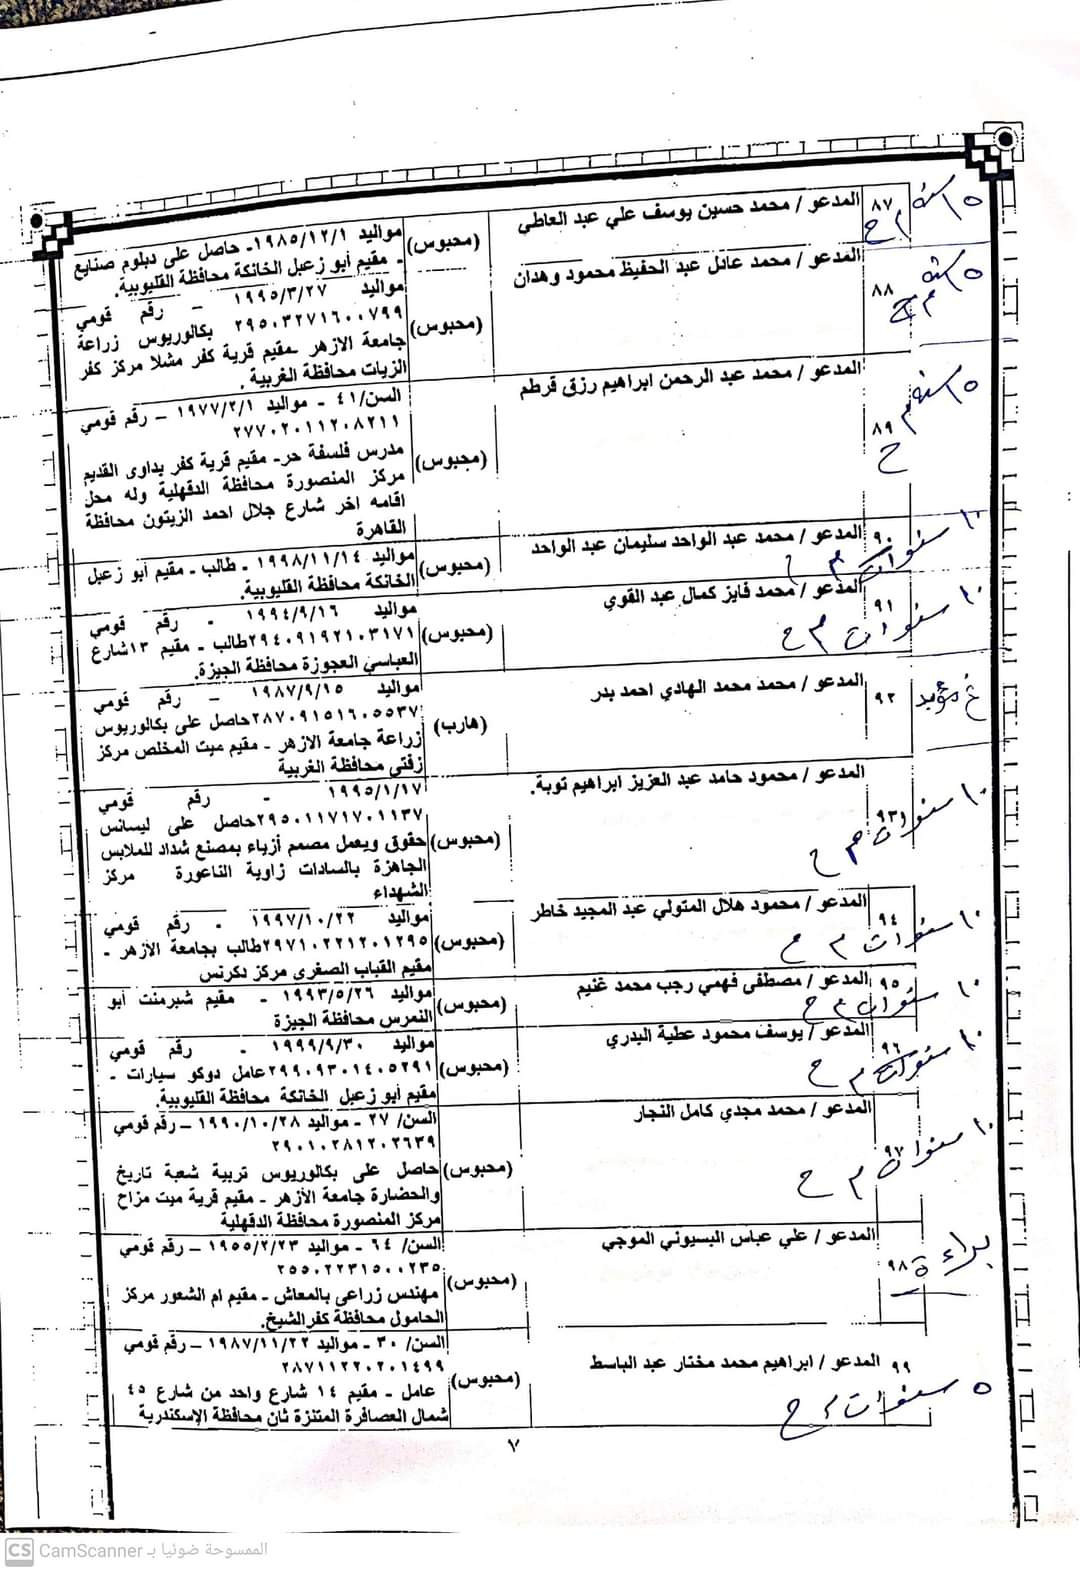 ٨٧ المدعو / محمد حسين يوسف علي عبد العاطي (محبوس)
مواليد ١٩٨٥/١٢/١- حاصل على دبلوم صنايع
- مقيم أبو زعبل الخانكة محافظة القليوبية.
١٥ سنة م ح
٨٨ المدعو / محمد عادل عبد الحفيظ محمود وهدان (محبوس)
مواليد ١٩٩٥/٣/٢٧ - رقم قومي
٢٩٥٠٣٢٧١٦٠٠٧٩٩ بكالوريوس زراعة
جامعة الازهر -مقيم قرية كفر مشلا مركز كفر
الزيات محافظة الغربية .
١٥ سنة م ح
٨٩ المدعو / محمد عبد الرحمن ابراهيم رزق قرطم (محبوس)
السن/٤١ - مواليد ١٩٧٧/٢/١ – رقم قومي
٢٧٧٠٢٠١١٢٠٨٢١١
مدرس فلسفة حر- مقيم قرية كفر بداوى القديم
مركز المنصورة محافظة الدقهلية وله محل
اقامه اخر شارع جلال احمد الزيتون محافظة
القاهرة
١٥ سنة م ح
٩٠ المدعو / محمد عبد الواحد سليمان عبد الواحد (محبوس)
مواليد ١٩٩٨/١١/١٤ - طالب - مقيم أبو زعبل
الخانكة محافظة القليوبية.
١٠ سنوات م ح
٩١ المدعو / محمد فايز كمال عبد القوي (محبوس)
مواليد ١٩٩٤/٩/١٦ - رقم قومي
٢٩٤٠٩١٩٢١٠٣١٧١طالب - مقيم ١٣شارع
العباسي العجوزة محافظة الجيزة.
١٠ سنوات م ح
٩٢ المدعو / محمد محمد الهادي احمد بدر (هارب)
مواليد ١٩٨٧/٩/١٥ - رقم قومي
٢٨٧٠٩١٥١٦٠٥٥٣٧حاصل على بكالوريوس
زراعة جامعة الازهر - مقيم ميت المخلص مركز
زفتي محافظة الغربية
غ مؤبد
٩٣ المدعو / محمود حامد عبد العزيز ابراهيم توبة. (محبوس)
١٩٩٥/١/١٧ - رقم قومي
٢٩٥٠١١٧١٧٠١١٣٧حاصل على ليسانس
حقوق ويعمل مصمم أزياء بمصنع شداد للملابس
الجاهزة بالسادات زاوية الناعورة مركز
الشهداء
١٠ سنوات م ح
٩٤ المدعو / محمود هلال المتولي عبد المجيد خاطر (محبوس)
مواليد ١٩٩٧/١٠/٢٢ - رقم قومي
٢٩٧١٠٢٢١٢٠١٢٩٥طالب بجامعة الأزهر -
مقيم القباب الصغرى مركز دكرنس
١٠ سنوات م ح
٩٥ المدعو / مصطفى فهمي رجب محمد غنيم (محبوس)
مواليد ١٩٩٣/٥/٢٦ - مقيم شبرمنت أبو
النمرس محافظة الجيزة
١٠ سنوات م ح
٩٦ المدعو / يوسف محمود عطية البدري (محبوس)
مواليد ١٩٩٩/٩/٣٠ - رقم قومي
٢٩٩٠٩٣٠١٤٠٥٢٩١عامل دوكو سيارات -
مقيم أبو زعبل الخانكة محافظة القليوبية.
١٠ سنوات م ح
٩٧ المدعو / محمد مجدي كامل النجار (محبوس)
السن/ ٢٧ - مواليد ١٩٩٠/١٠/٢٨ – رقم قومي
٢٩٠١٠٢٨١٢٠٢٦٣٩
حاصل على بكالوريوس تربية شعبة تاريخ
والحضارة جامعة الأزهر - مقيم قرية ميت مزاح
مركز المنصورة محافظة الدقهلية
١٠ سنوات م ح
٩٨ المدعو / علي عباس البسيوني الموجي (محبوس)
السن/ ٦٤ - مواليد ١٩٥٥/٢/٢٣ – رقم قومي
٢٥٥٠٢٢٣١٥٠٠٢٣٥
مهندس زراعى بالمعاش - مقيم ام الشعور مركز
الحامول محافظة كفرالشيخ.
براءة
٩٩ المدعو / ابراهيم محمد مختار عبد الباسط (محبوس)
السن/ ٣٠ - مواليد ١٩٨٧/١١/٢٢ – رقم قومي
٢٨٧١١٢٢٠٢٠١٤٩٩
عامل - مقيم ١٤ شارع واحد من شارع ٤٥
شمال العصافرة المتنزة ثان محافظة الإسكندرية
٥ سنوات م ح
٧
CS CamScanner الممسوحة ضوئيا بـ